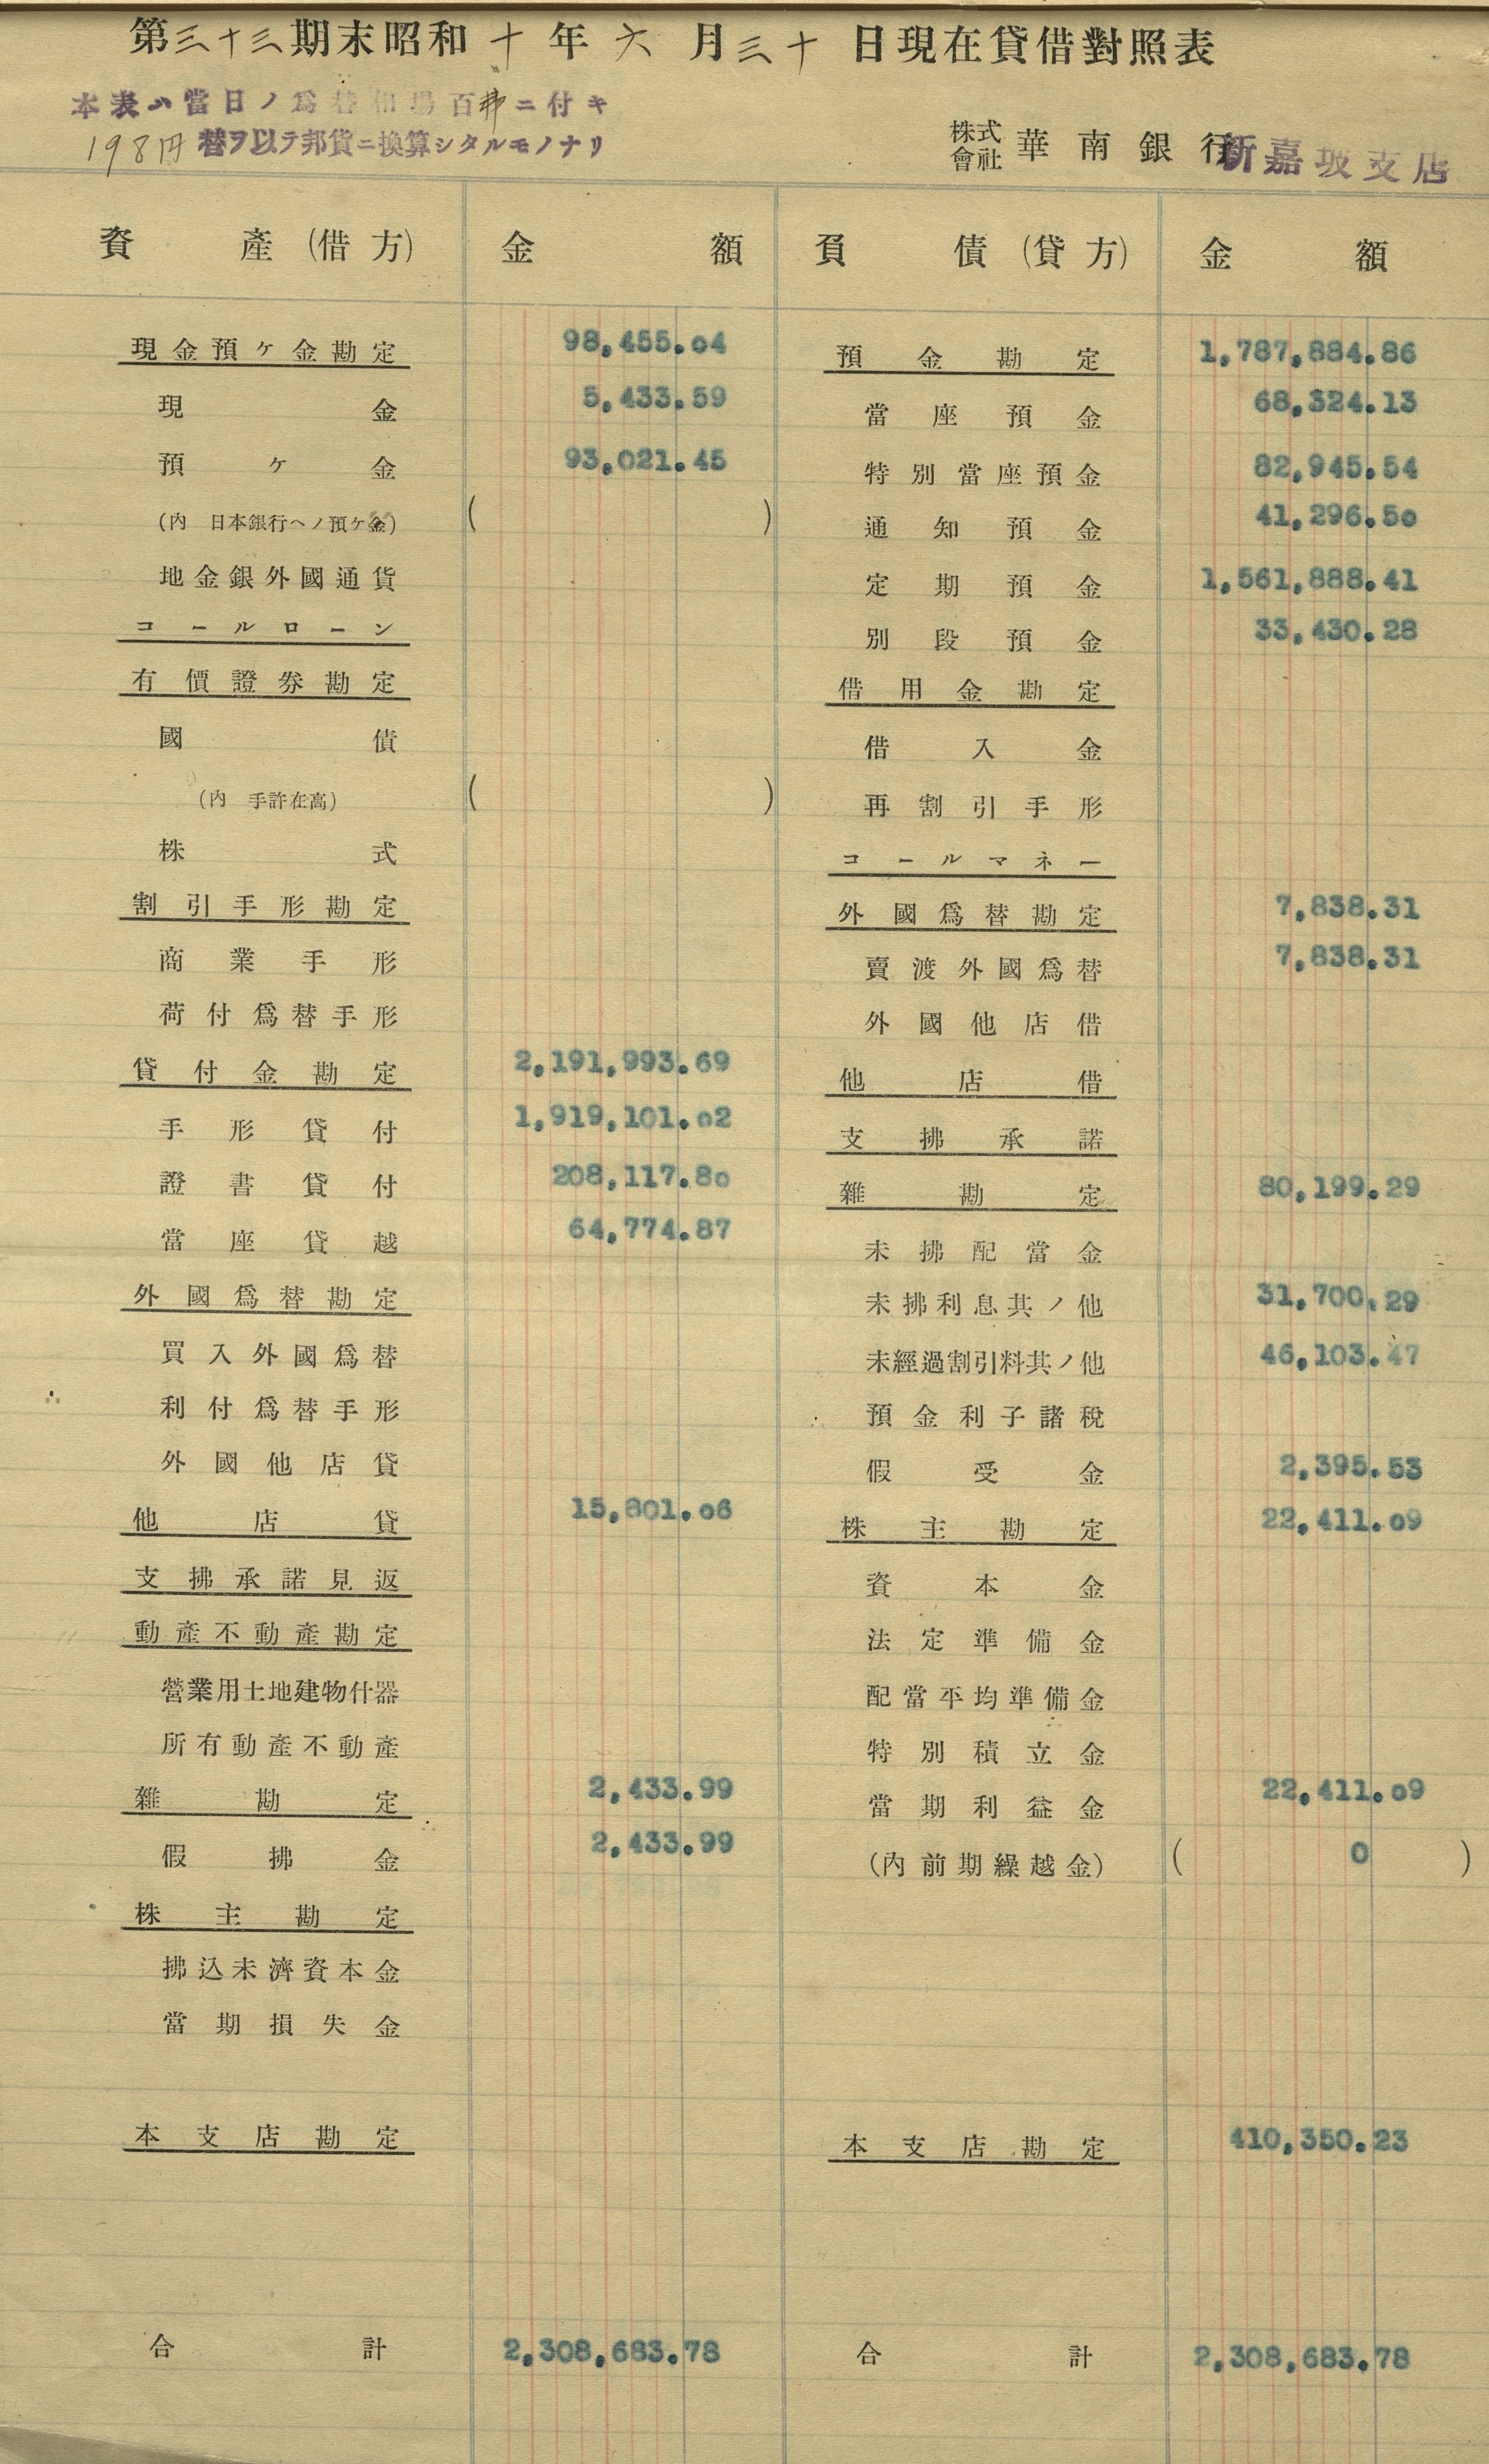 第三十三期末昭和十年六月三十日現在貸借對照表
本表ハ當日ノ爲替相場百弗ニ付キ
198円替ヲ以テ邦貨ニ換算シタルモノナリ
株式會社 華南銀行新嘉坡支店
資產(借方) 金額 負債(貸方) 金額
現金預ケ金勘定 98,455.04
現金 5,433.59
預ケ金 93,021.45
(內 日本銀行ヘノ預ケ金) ( )
地金銀外國通貨
コールローン
有價證券勘定
國債
(內 手許在高) ( )
株式
割引手形勘定
商業手形
荷付爲替手形
貸付金勘定 2,191,993.69
手形貸付 1,919,101.02
證書貸付 208,117.80
當座貸越 64,774.87
外國爲替勘定
買入外國爲替
利付爲替手形
外國他店貸
他店貸 15,801.06
支拂承諾見返
動產不動產勘定
營業用土地建物什器
所有動產不動產
雜勘定 2,433.99
假拂金 2,433.99
株主勘定
拂込未濟資本金
當期損失金
本支店勘定
合計 2,308,683.78
預金勘定 1,787,884.86
當座預金 68,324.13
特別當座預金 82,945.54
通知預金 41,296.50
定期預金 1,561,888.41
別段預金 33,430.28
借用金勘定
借入金
再割引手形
コールマネー
外國爲替勘定 7,838.31
賣渡外國爲替 7,838.31
外國他店借
他店借
支拂承諾
雜勘定 80,199.29
未拂配當金
未拂利息其ノ他 31,700.29
未經過割引料其ノ他 46,103.47
預金利子諸稅
假受金 2,395.53
株主勘定 22,411.09
資本金
法定準備金
配當平均準備金
特別積立金
當期利益金 22,411.09
(內前期繰越金) ( 0 )
本支店勘定 410,350.23
合計 2,308,683.78